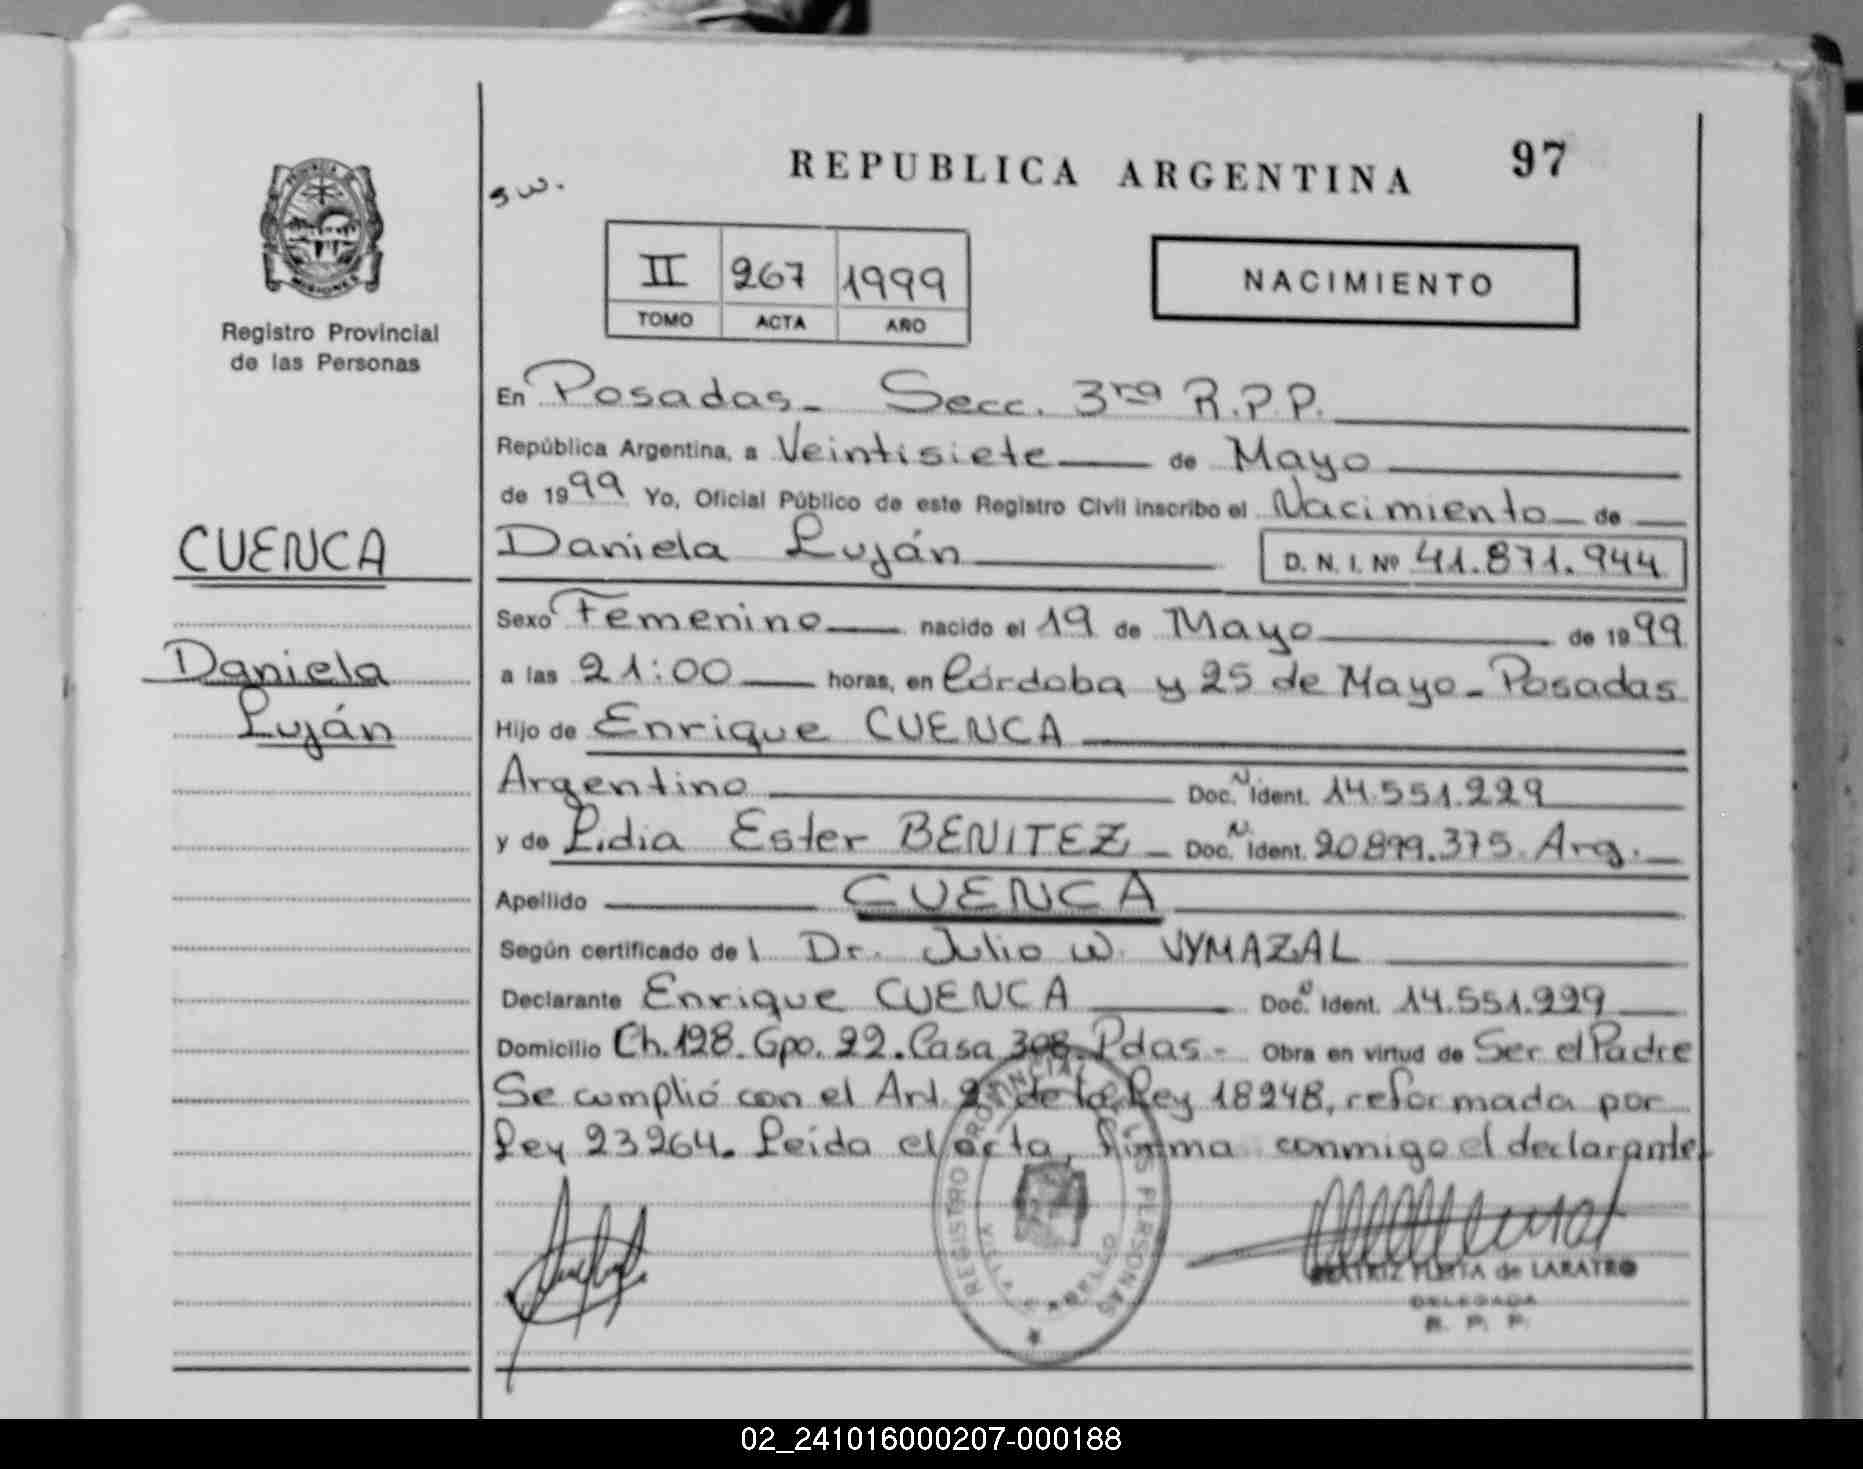 REPUBLICA ARGENTINA
97
s w.
PROVINCIA DE
MISIONES
Registro Provincial
de las Personas
II 267 1999
TOMO ACTA AÑO
NACIMIENTO
En Posadas - Secc. 3ra R.P.P.
República Argentina, a Veintisiete de Mayo
de 1999 Yo, Oficial Público de este Registro Civil inscribo el Nacimiento de
CUENCA
Daniela Luján D. N. I. Nº 41.871.944
Sexo Femenino nacido el 19 de Mayo de 1999
Daniela
a las 21:00 horas, en Córdoba y 25 de Mayo - Posadas
Luján
Hijo de Enrique CUENCA
Argentino Doc. N Ident. 14.551.229
y de Lidia Ester BENITEZ - Doc. N Ident. 20.899.375. Arg.
Apellido CUENCA
Según certificado de l Dr. Julio W. VYMAZAL
Declarante Enrique CUENCA Doc. N Ident. 14.551.229
Domicilio Ch. 128. Gpo. 22. Casa 308. Pdas - Obra en virtud de Ser el Padre
Se cumplió con el Art. 2 de la Ley 18248, reformada por
Ley 23264. Leída el acta, firma conmigo el declarante
REGISTRO PROVINCIAL DE LAS PERSONAS
VILLA CABELLO
BEATRIZ de LARATRO
DELEGADA
R. P. P.
02_241016000207-000188